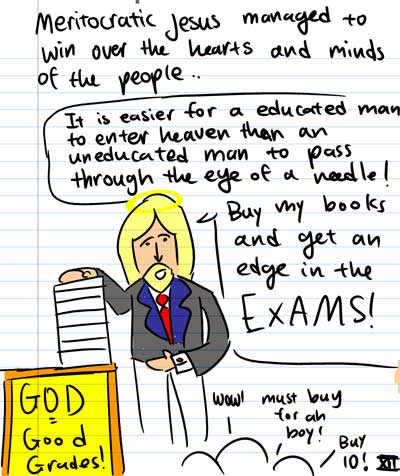 Meritocratic Jesus managed to
win over the hearts and minds
of the people..
It is easier for a educated man
to enter heaven than an
uneducated man to pass
through the eye of a needle!
Buy my books
and get an
edge in the
EXAMS!
GOD
=
Good
Grades!
wow!
must buy
for ah
boy!
Buy
10!
XII